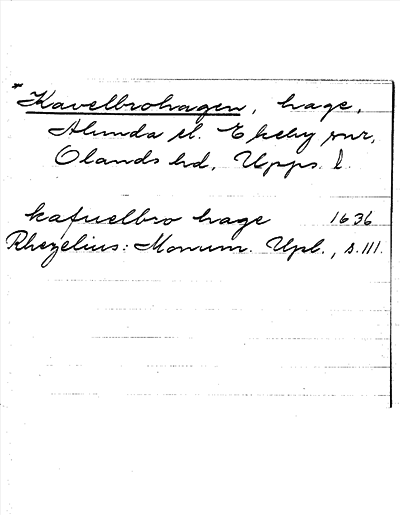 *Kavelbrohagen, hage,
Alunda el. Ekeby snr,
Olands hd, Upps. l.
kafuelbro hage 1636
Rhezelius: Monum. Upl., s. 111.